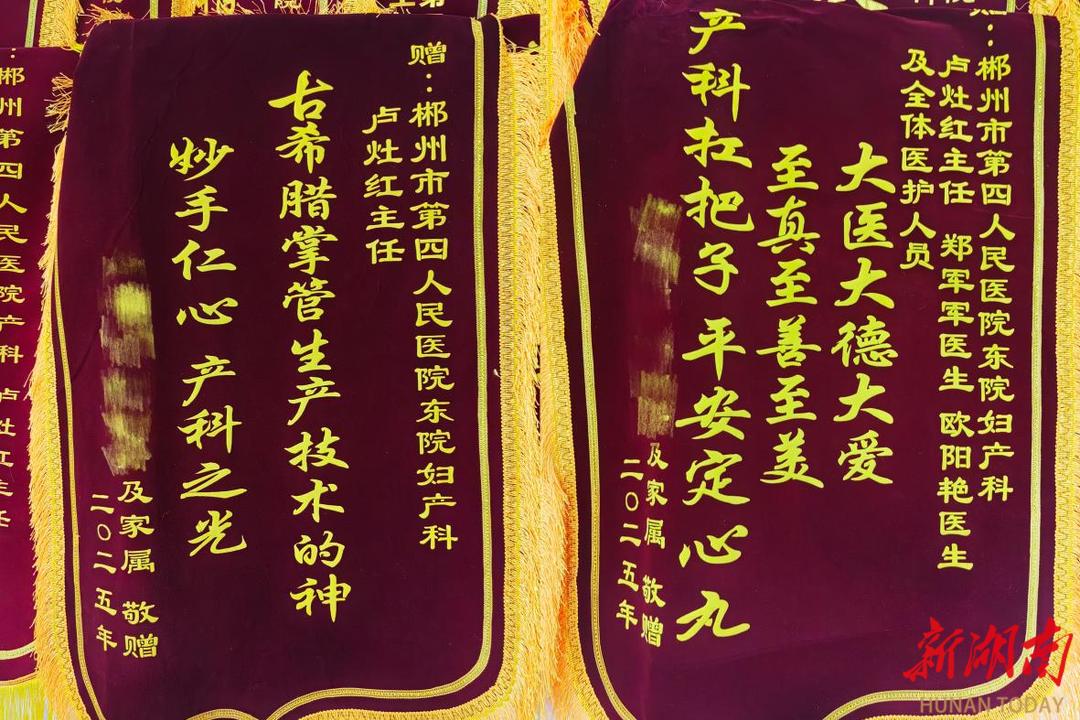 赠：郴州市第四人民医院东院妇产科
卢灶红主任
古希腊掌管生产技术的神
妙手仁心 产科之光
及家属 敬赠
二〇二五年
：郴州市第四人民医院东院妇产科
卢灶红主任 郑军军医生 欧阳艳医生
及全体医护人员
大医大德大爱
至真至善至美
产科扛把子 平安定心丸
及家属 敬赠
二〇二五年
：郴州第四人民医院产科 卢灶红主任
新湖南
HUNAN TODAY